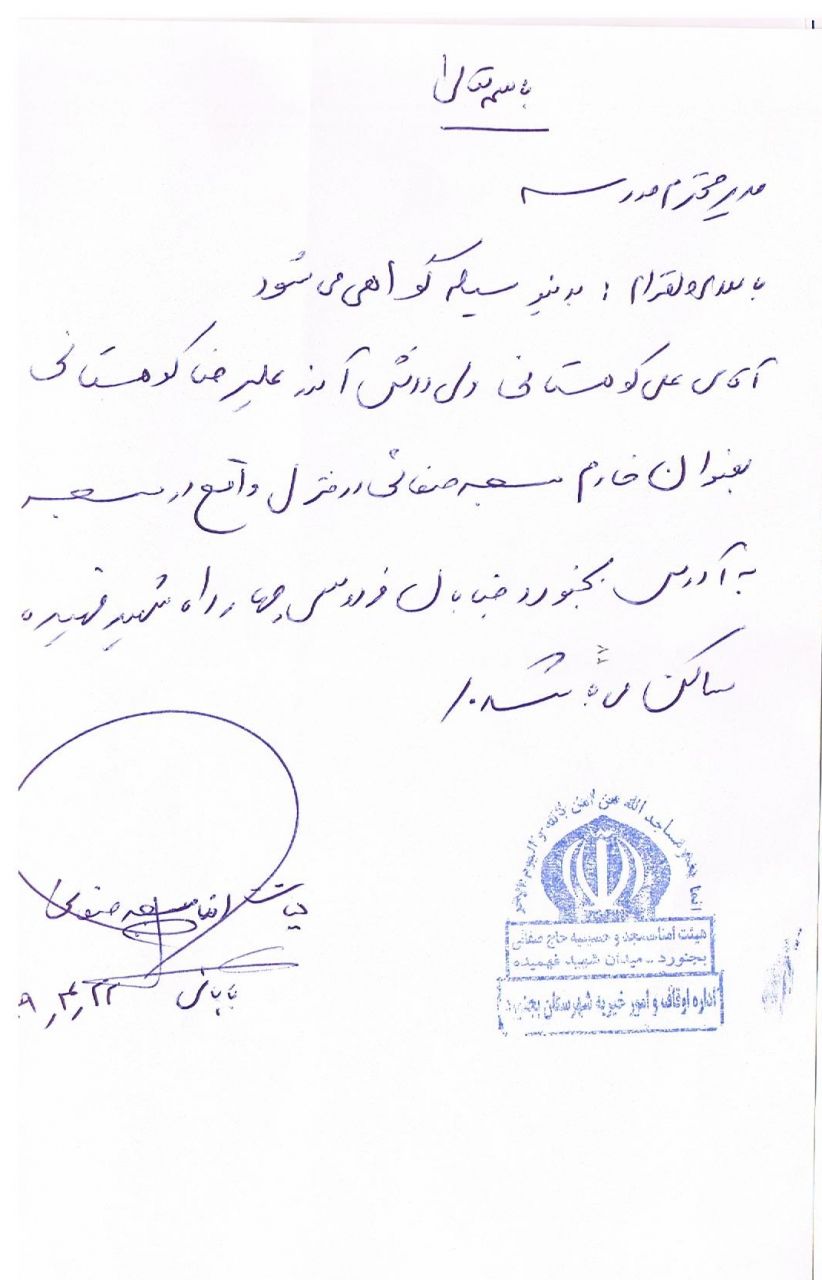 باسمه تعالی
مدیر محترم مدرسه
با سلام و احترام : بدینوسیله گواهی می شود
آقای علی کوهستانی ولی دانش آموز علیرضا کوهستانی
بعنوان خادم مسجد صفائی در منزل واقع در مسجد
به آدرس بجنورد خیابان فردوسی چهارراه شهید فهمیده
۲۷
ساکن می باشد.
انما یعمر مساجد الله من امن بالله و الیوم الاخر
هیئت امناء مسجد و حسینیه حاج صفائی
بجنورد - میدان شهید فهمیده
اداره اوقاف و امور خیریه شهرستان بجنورد
هیأت امناء مسجد صفائی